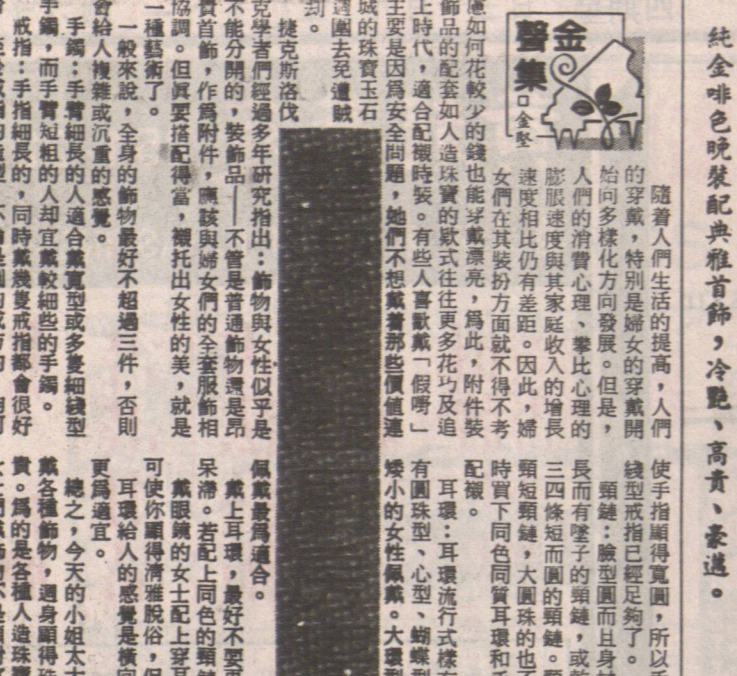 純金啡色晚裝配典雅首飾,冷艷、高貴、豪邁。
金聲集
□金堅
隨着人們生活的提高,人們
的穿戴,特別是婦女的穿戴開
始向多樣化方向發展。但是,
人們的消費心理、攀比心理的
膨脹速度與其家庭收入的增長
速度相比仍有差距。因此,婦
女們在其裝扮方面就不得不考
慮如何花較少的錢也能穿戴漂亮,爲此,附件裝
飾品的配套如人造珠寶的欵式往往更多花巧及追
上時代,適合配襯時裝。有些人喜歡戴「假嘢」
主要是因爲安全問題,她們不想戴着那些價值連
城的珠寶玉石
週圍去免遭賊
刧。
捷克斯洛伐
克學者們經過多年研究指出:飾物與女性似乎是
不能分開的,裝飾品——不管是普通飾物還是昂
貴首飾,作爲附件,應該與婦女們的全套服飾相
協調。但眞要搭配得當,襯托出女性的美,就是
一種藝術了。
一般來說,全身的飾物最好不超過三件,否則
會給人複雜或沉重的感覺。
手鐲:手臂細長的人適合戴寬型或多隻細綫型
手鐲,而手臂短粗的人却宜戴較細些的手鐲。
戒指:手指細長的,同時戴幾隻戒指都會很好
使手指顯得寬圓,所以
綫型戒指已經足夠了。
頸鏈:臉型圓而且身
長而有墜子的頸鏈,或
三四條短而圓的頸鏈。
頸短頸鏈,大圓珠的也
時買下同色同質耳環和
配襯。
耳環:耳環流行式樣
有圓珠型、心型、蝴蝶型
矮小的女性佩戴。大環型
佩戴最爲適合。
戴上耳環,最好不要
呆滯。若配上同色的頸鏈
戴眼鏡的女士配上穿耳
可使你顯得清雅脫俗,但
耳環給人的感覺是橫向
更爲適宜。
總之,今天的小姐太太
戴各種飾物,週身顯得珠
貴。爲的是各種人造珠寶